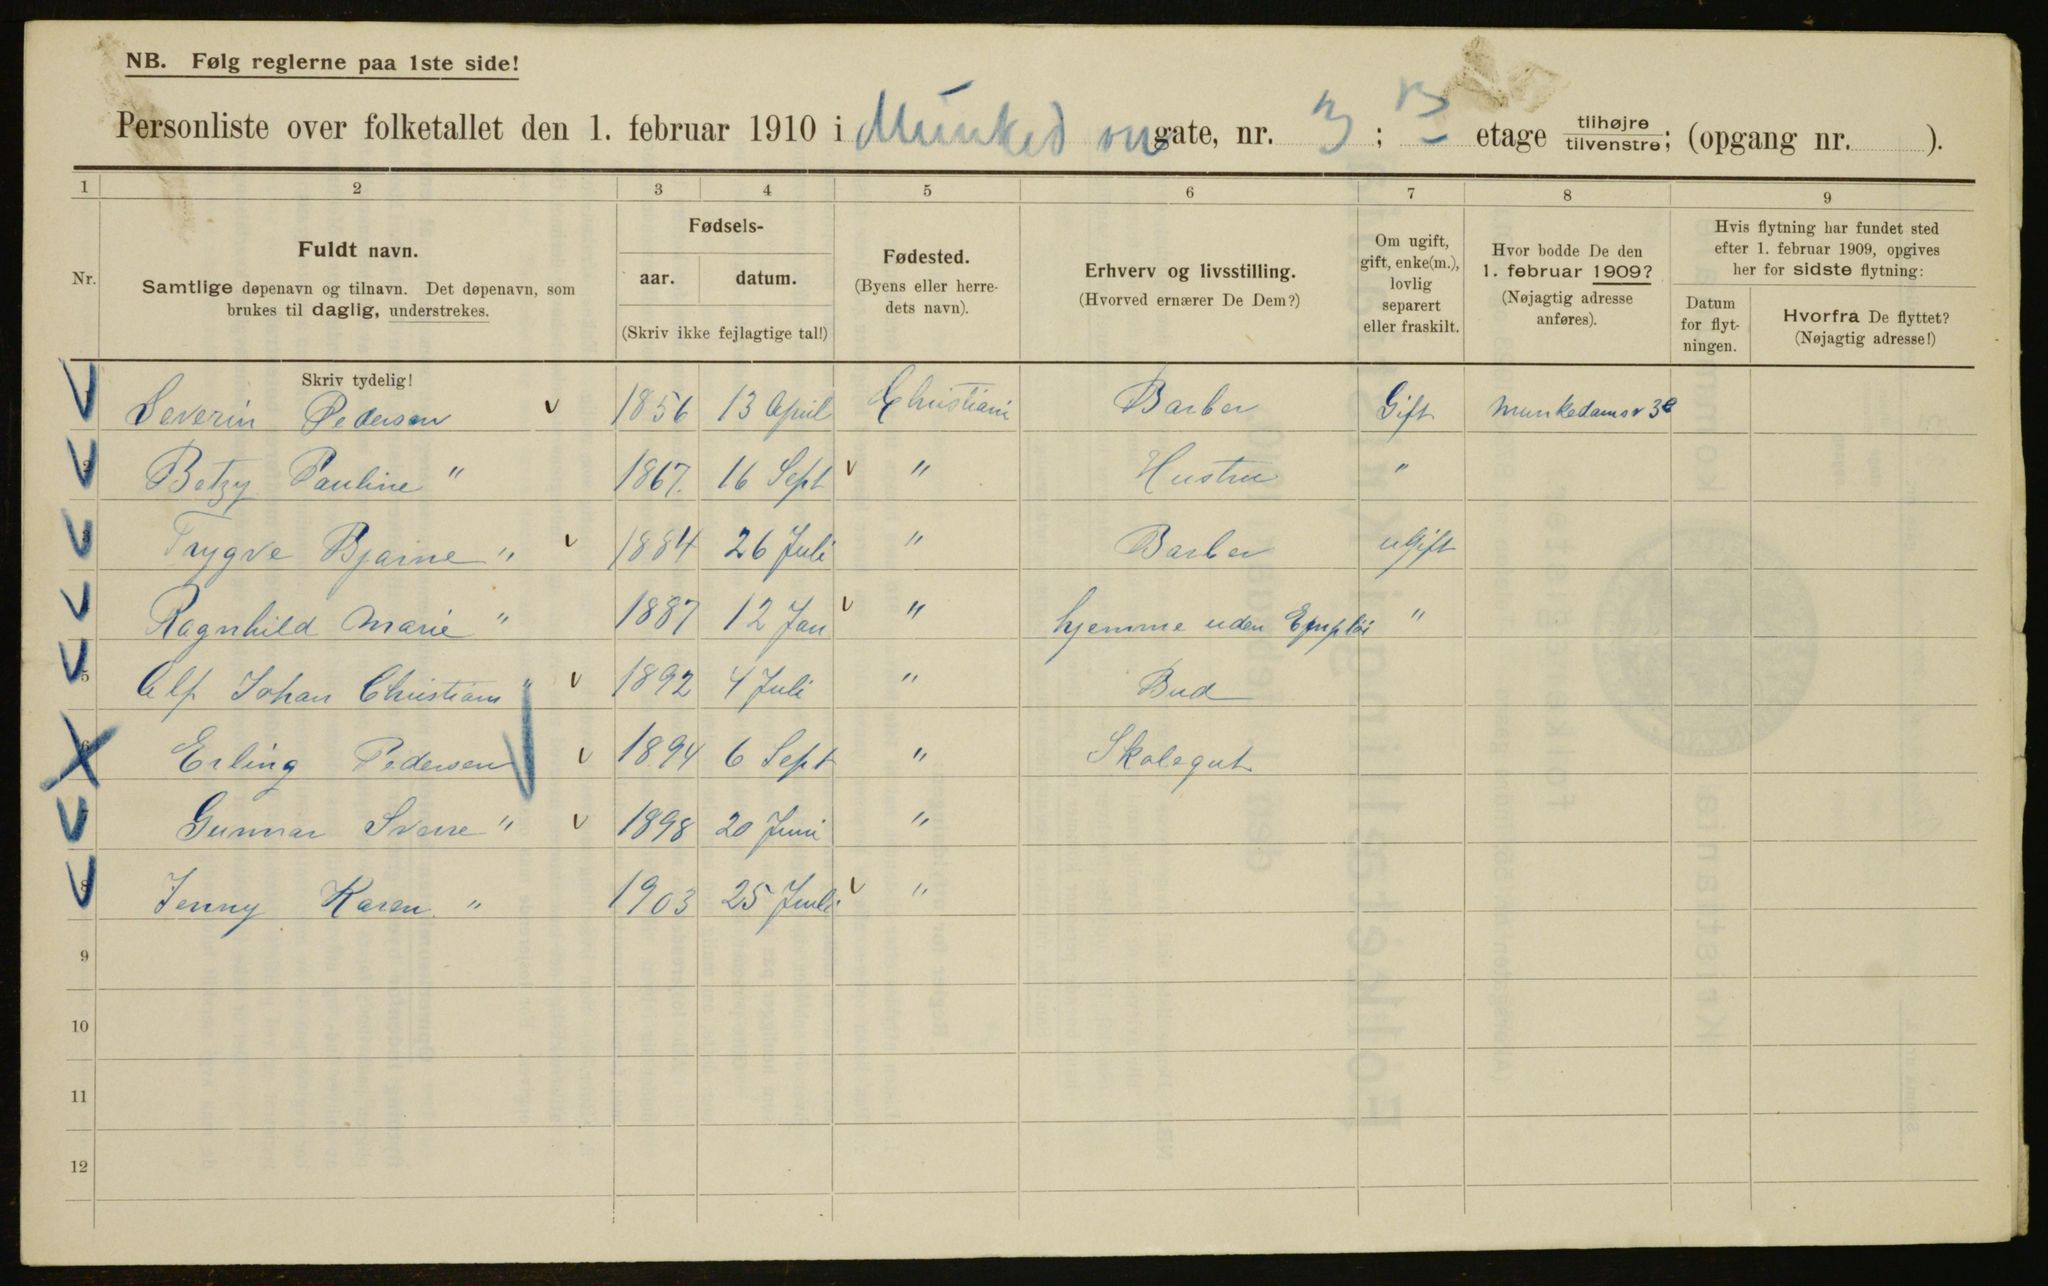 NB. Følg reglerne paa 1ste side!
Personliste over folketallet den 1. februar 1910 i Munked vn gate, nr. 3 ; etage tilhøjre tilvenstre; (opgang nr. ).
1 2 3 4 5 6 7 8 9
Nr.
Fuldt navn.
Samtlige døpenavn og tilnavn. Det døpenavn, som
brukes til daglig, understrekes.
Fødsels-
aar. datum.
(Skriv ikke fejlagtige tal!)
Fødested.
(Byens eller herre-
dets navn).
Erhverv og livsstilling.
(Hvorved ernærer De Dem?)
Om ugift,
gift, enke(m.),
lovlig
separert
eller fraskilt.
Hvor bodde De den
1. februar 1909?
(Nøjagtig adresse
anføres).
Hvis flytning har fundet sted
efter 1. februar 1909, opgives
her for sidste flytning:
Datum
for flyt-
ningen.
Hvorfra De flyttet?
(Nøjagtig adresse!)
Skriv tydelig!
Severin Pedersen 1856 13 April Christiani Barber Gift Munkedamsv 3e
2 Betzy Pauline " 1867. 16 Sept " Hustru "
3 Trygve Bjarne " 1884 26 Juli " Barber ugift
Ragnhild Marie " 1887 12 Jan " hjemme uden Emplöi "
5 Alf Johan Christian " 1892 4 Juli " Bud
6 Erling Pedersen 1894 6 Sept " Skolegut
7 Gunnar Sverre " 1898 20 Juni "
8 Jenny Karen. " 1903 25 Juli "
9
10
11
12